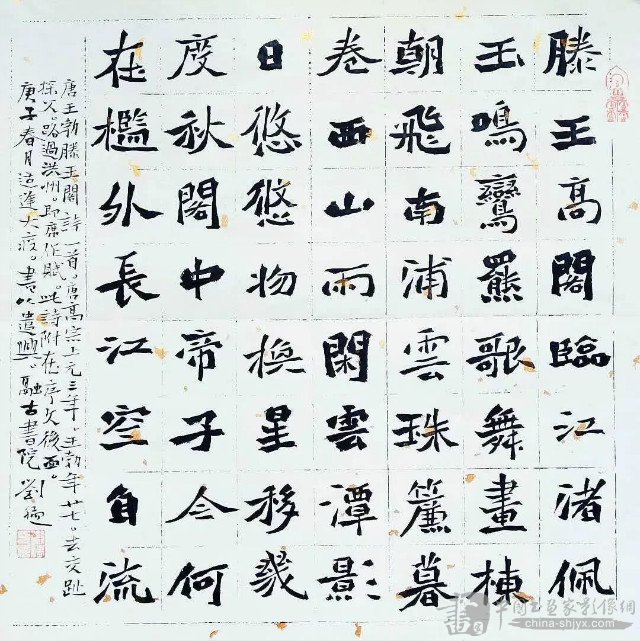 滕王高閣臨江渚佩
玉鳴鸞罷歌舞畫棟
朝飛南浦雲珠簾暮
卷西山雨閑雲潭影
日悠悠物換星移幾
度秋閣中帝子今何
在檻外長江空自流
唐王勃滕王閣詩一首。唐高宗上元三年，王勃年廿七。去交趾
探父。路過洪州。即席作賦。此詩附在序文後面。
庚子春月适逢大疫。書以遣興。融古書院 劉
中國书画家影像網
china-shjyx.com